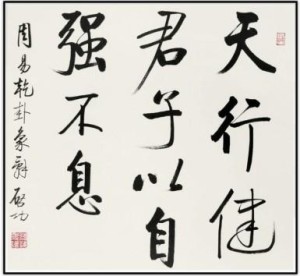 天行健
君子以自
强不息
周易乾卦象辞启功